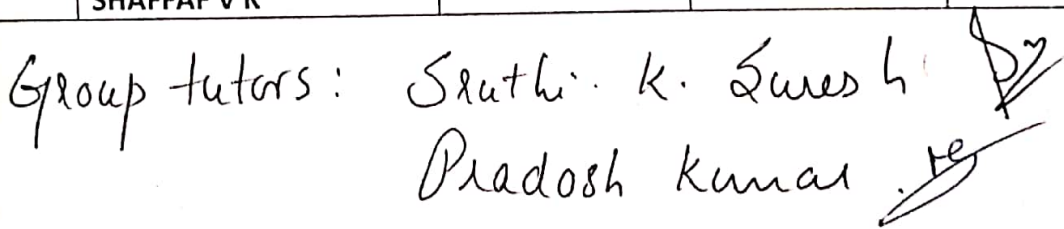 SHAFFAF V K
Group tutors: Sruthi. K. Suresh
Pradosh Kumar